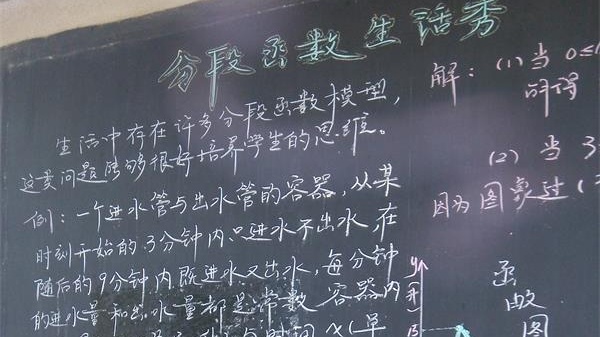 分段函数生活秀
生活中存在许多分段函数模型，
这类问题能够很好培养学生的思维。
例：一个进水管与出水管的容器，从某
时刻开始的3分钟内只进水不出水，在
随后的9分钟内既进水又出水，每分钟
的进水量和出水量都是常数 容器内
时间 x(单
解：(1)当 0≤
时得
(2) 当 3
因为图象过(
y
(升)
15
函
数
图